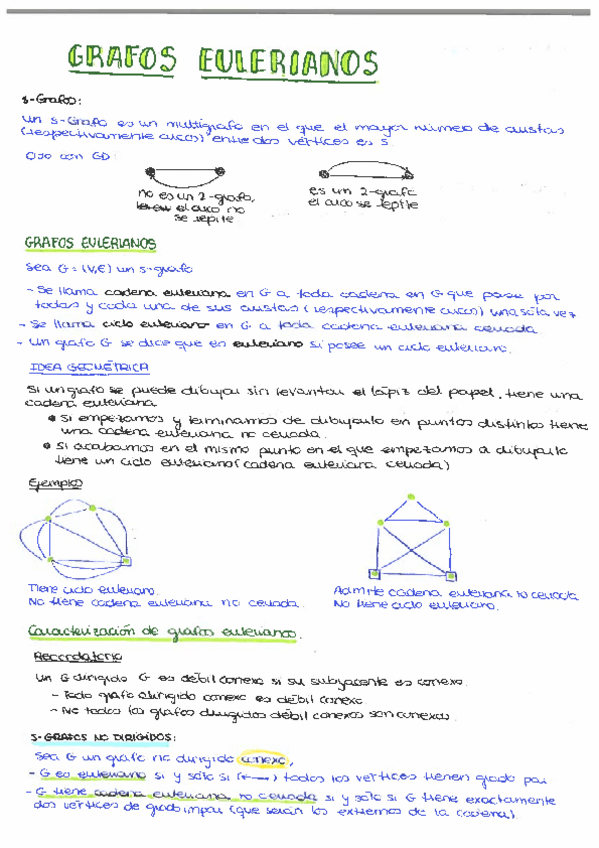 GRAFOS EULERIANOS
s-Grafos:
Un s-Grafo es un multigrafo en el que el mayor número de aristas
(respectivamente arcos) entre dos vértices es s.
Ojo con GD:
no es un 2-grafo,
el arco no
se repite
es un 2-grafo
el arco se repite
GRAFOS EULERIANOS
Sea G = (V,E) un s-grafo
- Se llama cadena euleriana en G a toda cadena en G que pase por
todas y cada una de sus aristas (respectivamente arcos) una sola vez
- Se llama ciclo euleriano en G a toda cadena euleriana cerrada
- Un grafo G se dice que es euleriano si posee un ciclo euleriano.
IDEA GEOMÉTRICA
Si un grafo se puede dibujar sin levantar el lápiz del papel, tiene una
cadena euleriana
• Si empezamos y terminamos de dibujarlo en puntos distintos tiene
una cadena euleriana no cerrada.
• Si acabamos en el mismo punto en el que empezamos a dibujarlo
tiene un ciclo euleriano (cadena euleriana cerrada)
Ejemplos
Tiene ciclo euleriano.
No tiene cadena euleriana no cerrada.
Admite cadena euleriana no cerrada
No tiene ciclo euleriano.
Caracterización de grafos eulerianos.
Recordatorio
Un G dirigido G es débil conexo si su subyacente es conexo.
- Todo grafo dirigido conexo es débil conexo.
- No todos los grafos dirigidos débil conexos son conexos.
S-GRAFOS NO DIRIGIDOS:
Sea G un grafo no dirigido conexo,
- G es euleriano si y sólo si (⟷) todos los vértices tienen grado par
- G tiene cadena euleriana no cerrada si y sólo si G tiene exactamente
dos vértices de grado impar (que serán los extremos de la cadena).